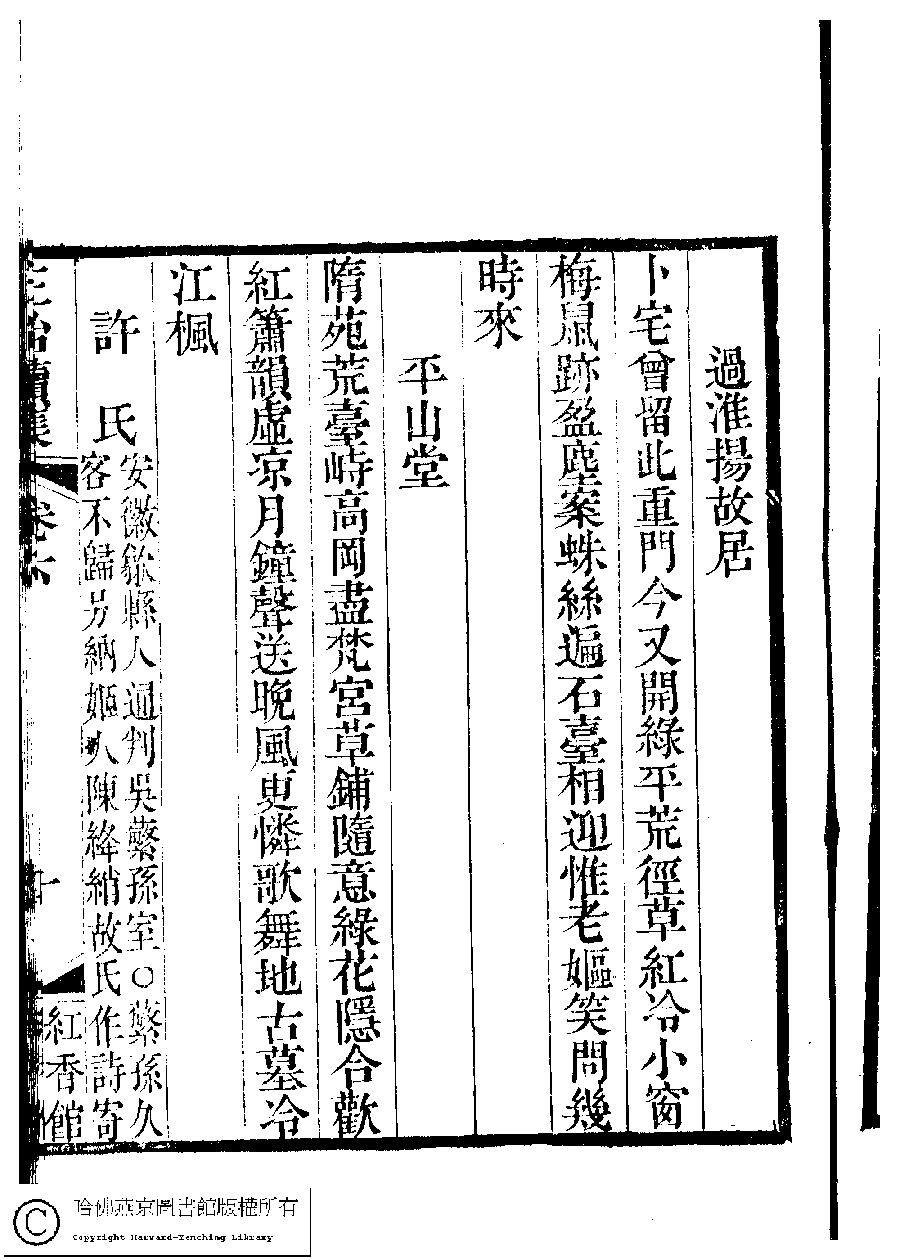 過淮揚故居
卜宅曾留此重門今又開綠平荒徑草紅冷小窗
梅鼠跡盈塵案蛛絲遍石臺相迎惟老嫗笑問幾
時來
平山堂
隋苑荒臺峙高岡盡梵宮草鋪隨意綠花隱合歡
紅簫韻虛凉月鐘聲送晚風更憐歌舞地古墓冷
江楓
許氏
安徽歙縣人通判吳蘩孫室○蘩孫久
客不歸另納姬人陳絳綃故氏作詩寄
續集
十
紅香館
哈佛燕京圖書館版權所有
Copyright Harvard-Yenching Library